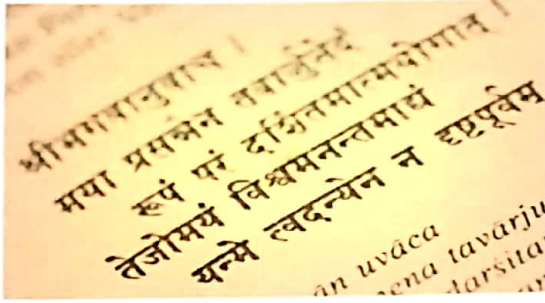 श्रीभगवानुवाच ।
मया प्रसन्नेन तवार्जुनेदं
रूपं परं दर्शितमात्मयोगात् ।
तेजोमयं विश्वमनन्तमाद्यं
यन्मे त्वदन्येन न दृष्टपूर्वम्
ān uvāca
ena tavārju
darśita